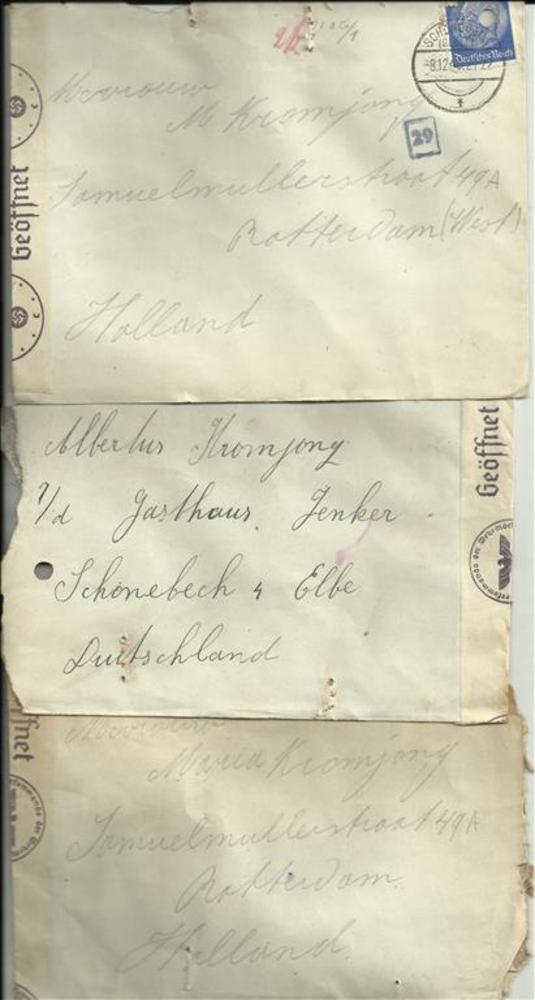 Mevrouw
M Kromjong
Samuelmullerstraat 49A
Rotterdam (West)
Holland
29
Deutsches Reich
Geöffnet
Albertus Kromjong
Gasthaus Jenker
Schönebech Elbe
Duitschland
Geöffnet
Mevrouw
Maria Kromjong
Samuelmullerstraat 49A
Rotterdam.
Holland.
ffnet